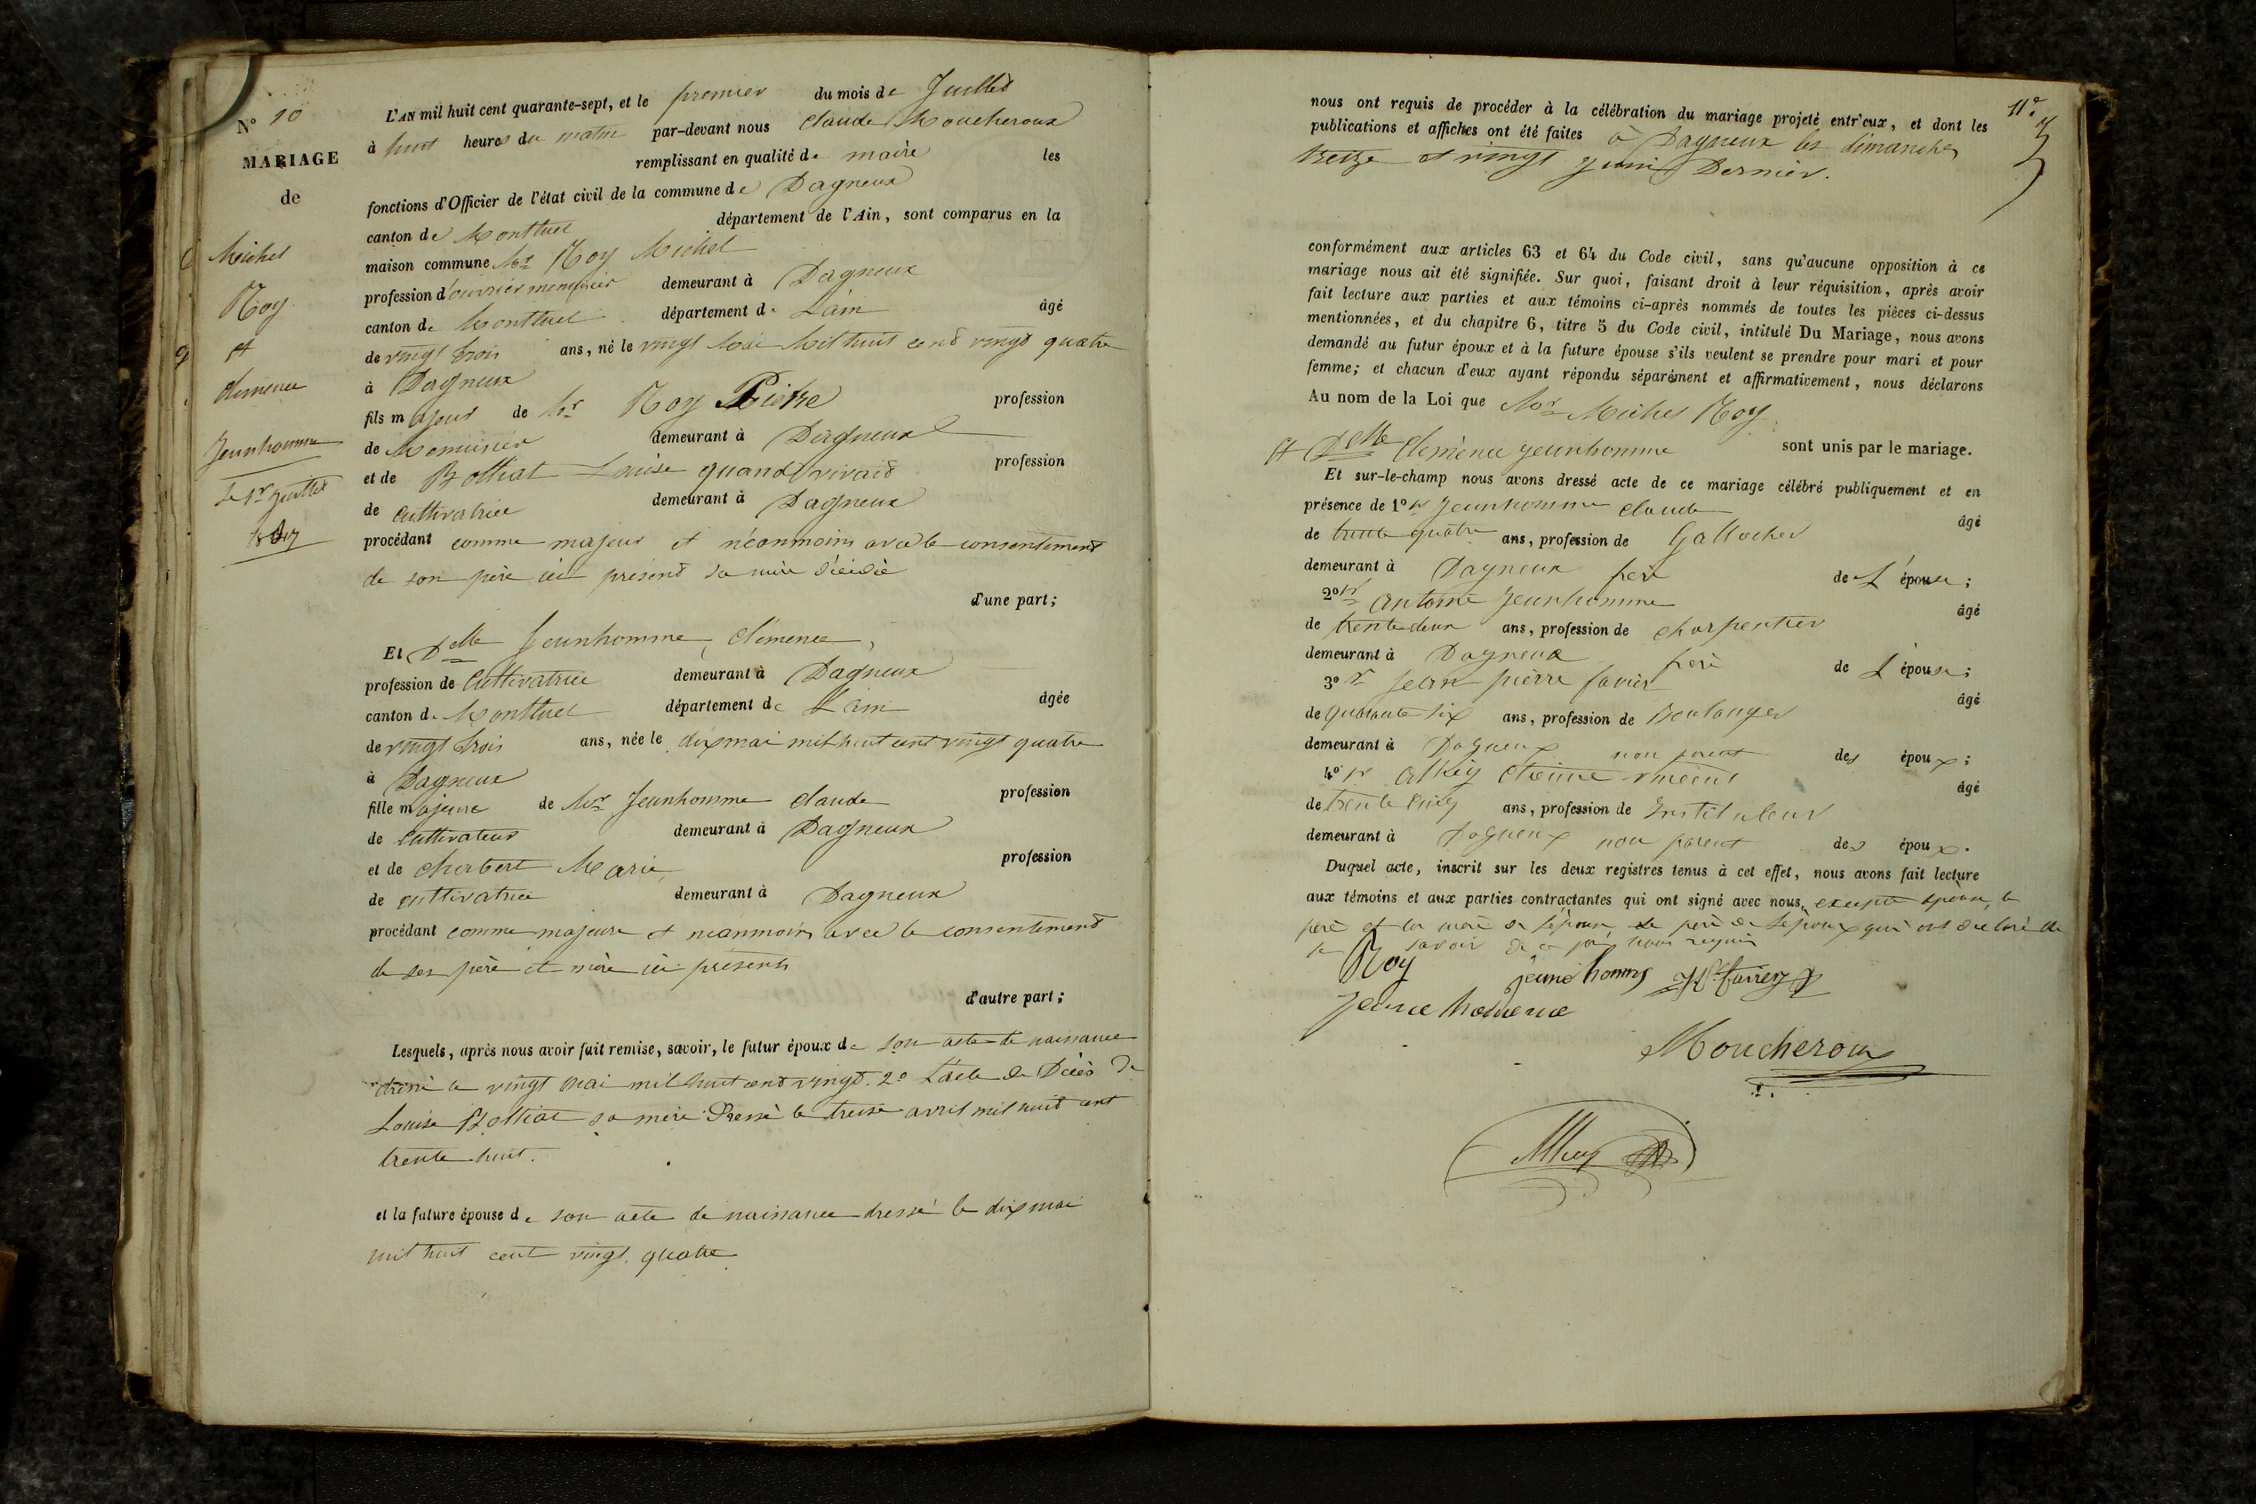 N° 10
MARIAGE
de
Michel
Roy
et
clemence
Jeunhomme
Le 1er Juillet
1847
L'AN mil huit cent quarante-sept, et le premier du mois de Juillet
à huit heures du matin par-devant nous Claude Moucheroux
remplissant en qualité de maire les
fonctions d'Officier de l'état civil de la commune de Dagneux
canton de Montluel département de l'Ain, sont comparus en la
maison commune Mr Roy Michel
profession d'ouvrier menuisier demeurant à Dagneux
canton de Montluel département de L'ain âgé
de vingt trois ans, né le vingt Mai Mil huit cent vingt quatre
à Dagneux
fils majeur de Mr Roy Pierre profession
de Menuisier demeurant à Dagneux
et de Bolliat Louise quand vivait profession
de cultivatrice demeurant à Dagneux
procédant comme majeur et néanmoins avec le consentement
de son père ici présent sa mère décédée
d'une part;
Et Delle Jeunhomme, Clémence,
profession de Cultivatrice demeurant à Dagneux
canton de Montluel département de L'ain âgée
de vingt trois ans, née le dix mai mil huit cent vingt quatre
à Dagneux
fille majeure de Mr Jeunhomme Claude profession
de Cultivateur demeurant à Dagneux
et de Cherbert Marie profession
de cultivatrice demeurant à Dagneux
procédant comme majeure et néanmoins avec le consentement
de ses père et mère ici présents
d'autre part;
Lesquels, après nous avoir fait remise, savoir, le futur époux de son acte de naissance
dressé le vingt mai mil huit cent vingt. 2° L'acte de Décès de
Louise Bolliat sa mère Dressé le treize avril mil huit cent
trente huit.
et la future épouse de son acte de naissance dressé le dix mai
mil huit cent vingt quatre
11e
nous ont requis de procéder à la célébration du mariage projeté entr'eux, et dont les
publications et affiches ont été faites à Dagneux les dimanches
treize et vingt Juin Dernier.
conformément aux articles 63 et 64 du Code civil, sans qu'aucune opposition à ce
mariage nous ait été signifiée. Sur quoi, faisant droit à leur réquisition, après avoir
fait lecture aux parties et aux témoins ci-après nommés de toutes les pièces ci-dessus
mentionnées, et du chapitre 6, titre 5 du Code civil, intitulé Du Mariage, nous avons
demandé au futur époux et à la future épouse s'ils veulent se prendre pour mari et pour
femme; et chacun d'eux ayant répondu séparément et affirmativement, nous déclarons
Au nom de la Loi que Mr Michel Roy
et Delle Clémence Jeunhomme sont unis par le mariage.
Et sur-le-champ nous avons dressé acte de ce mariage célébré publiquement et en
présence de 1° Sr Jeunhomme Claude âgé
de trente quatre ans, profession de Gallocher
demeurant à Dagneux frère de L'épouse;
2° Sr Antoine Jeunhomme âgé
de trente deux ans, profession de charpentier
demeurant à Dagneux frère de L'épouse;
3° Sr Jean pierre favier âgé
de quarante six ans, profession de Boulanger
demeurant à Dagneux non parent des époux;
4° Sr Alhéy Etienne vincent âgé
de trente cinq ans, profession de Instituteur
demeurant à Dagneux non parent des époux.
Duquel acte, inscrit sur les deux registres tenus à cet effet, nous avons fait lecture
aux témoins et aux parties contractantes qui ont signé avec nous, excepté épouse, le
père et la mère de L'épouse, le père de L'époux qui ont déclaré ne
le savoir de ce fait nous requis
Roy jeune homme JP favier
jeune homme
Moucheroux